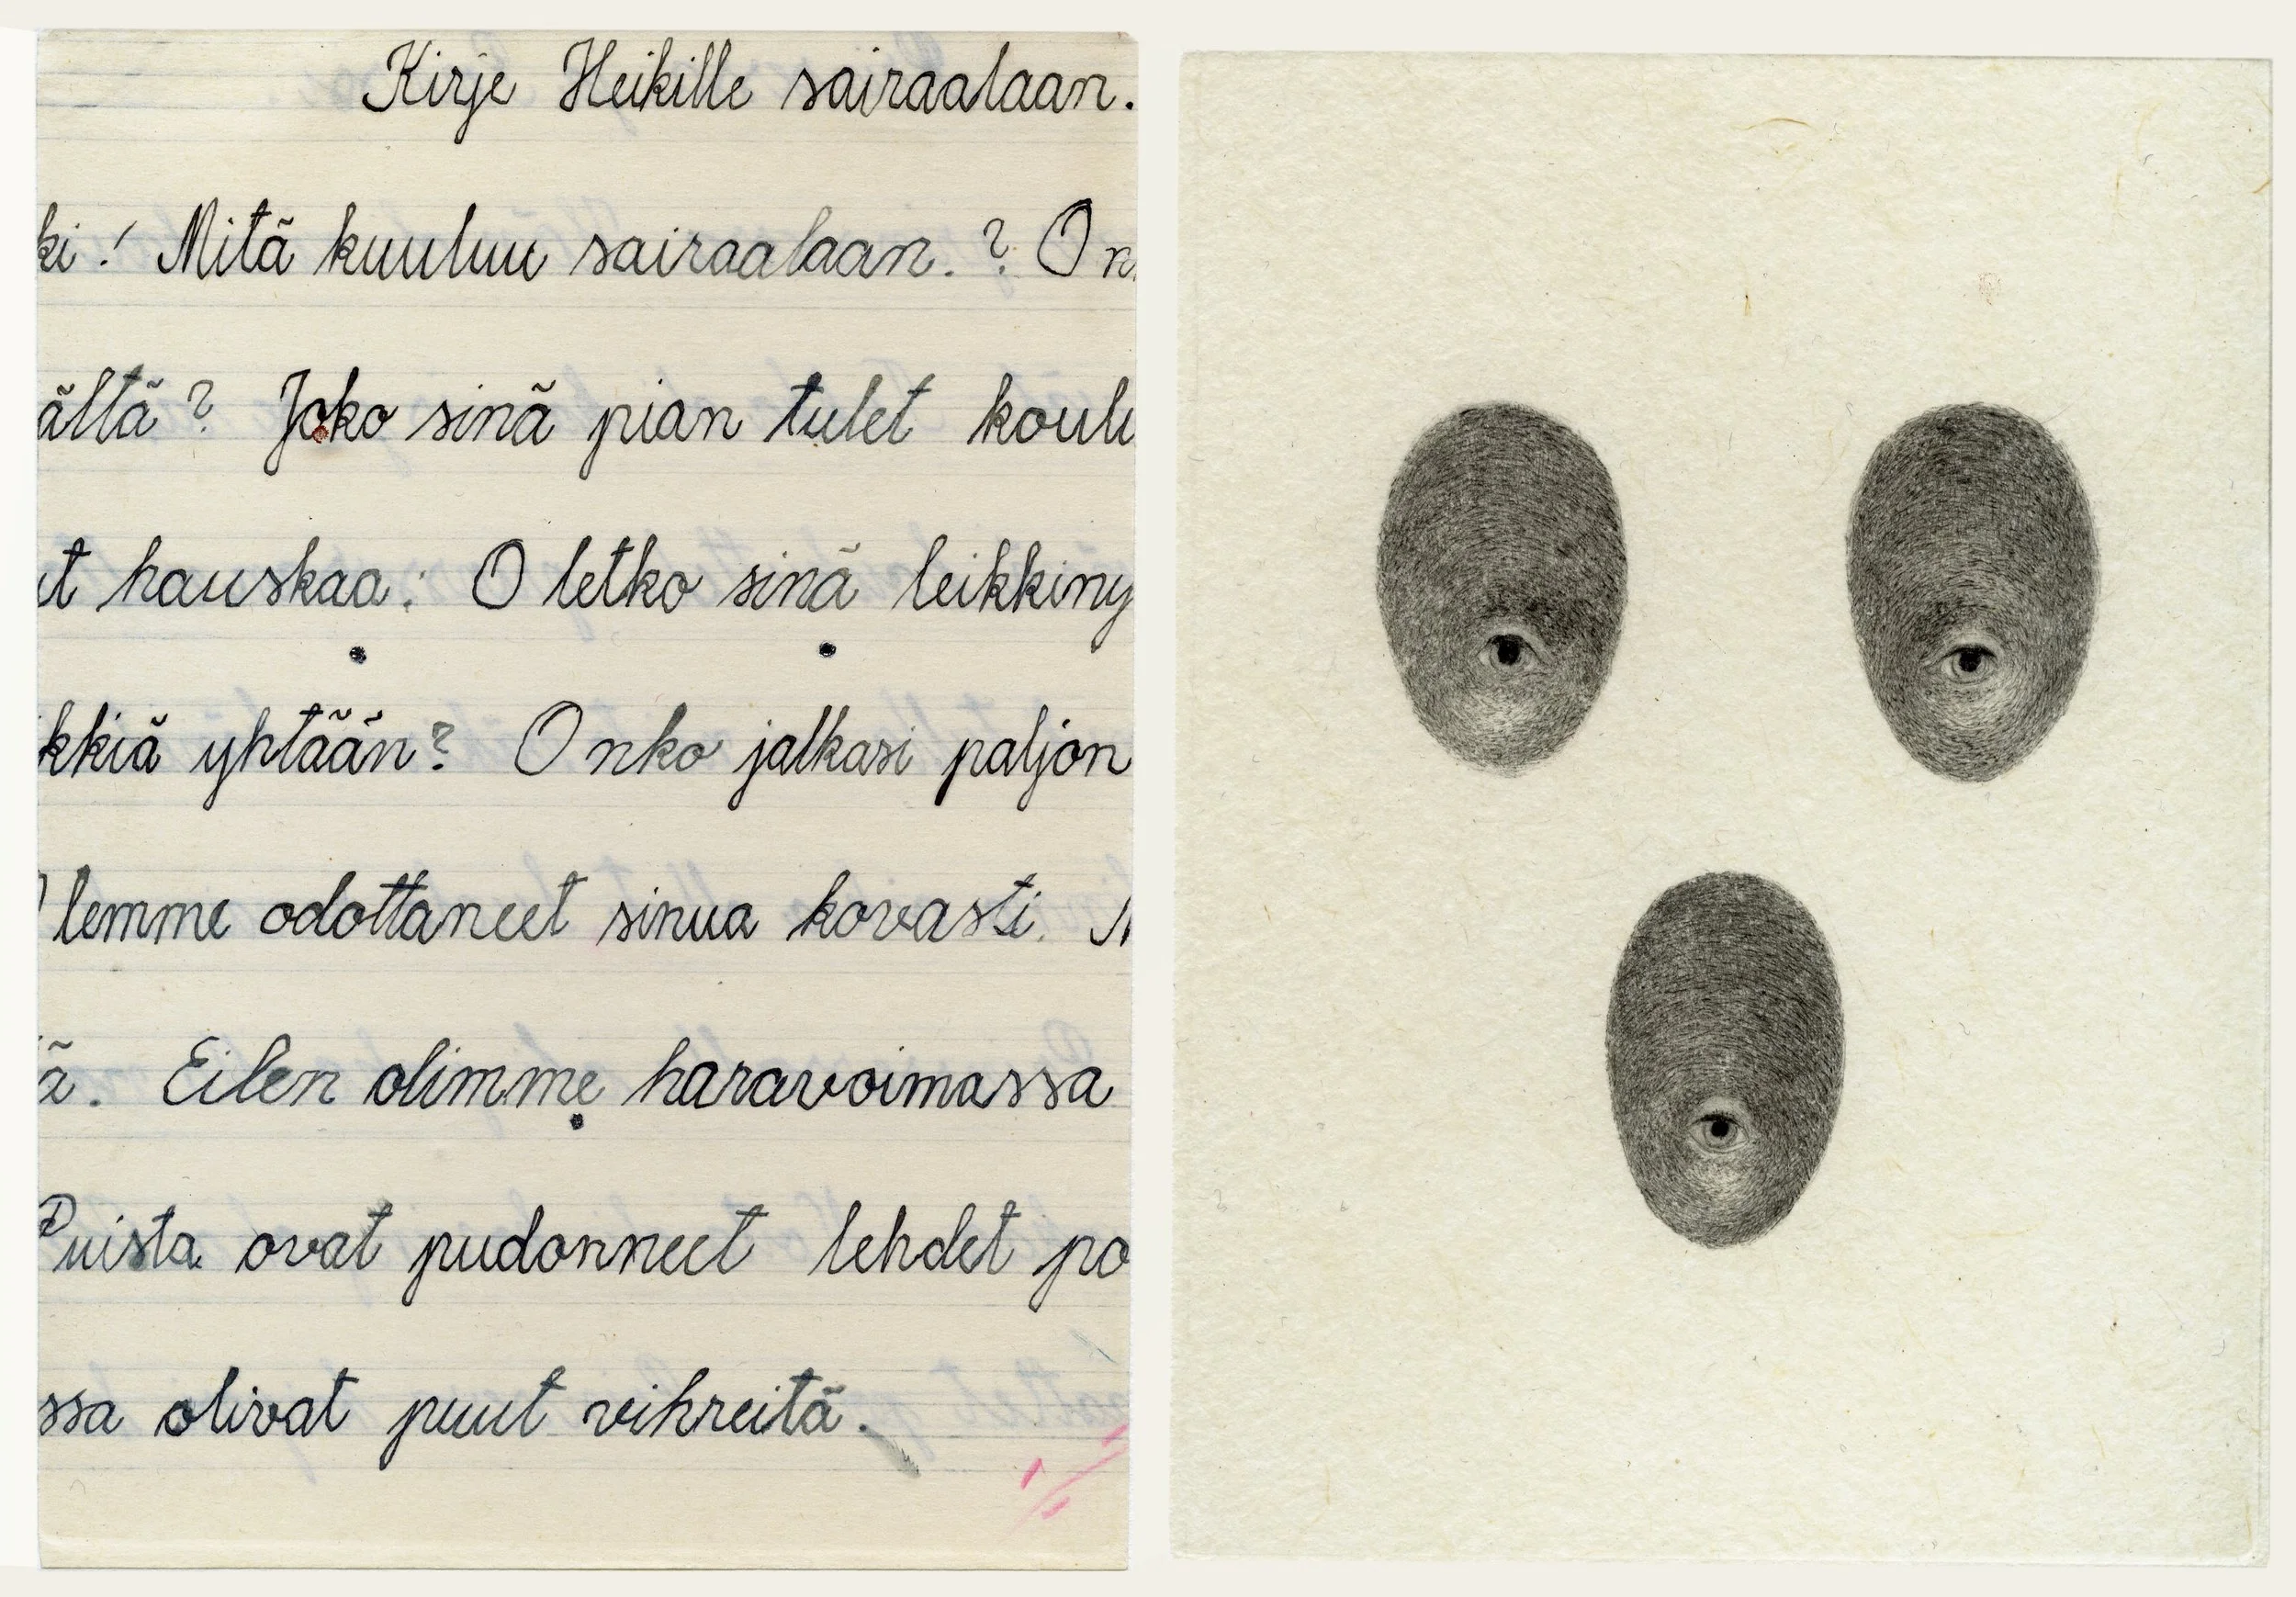 Kirje Heikille sairaalaan.
ki! Mitä kuuluu sairaalaan.? On
ältä? Joko sinä pian tulet koulu
ut hauskaa: Oletko sinä leikkiny
kkiä yhtään? Onko jalkasi paljon
Olemme odottaneet sinua kovasti.
ä. Eilen olimme haravoimassa
Puista ovat pudonneet lehdet po
ssa olivat puut vihreitä.